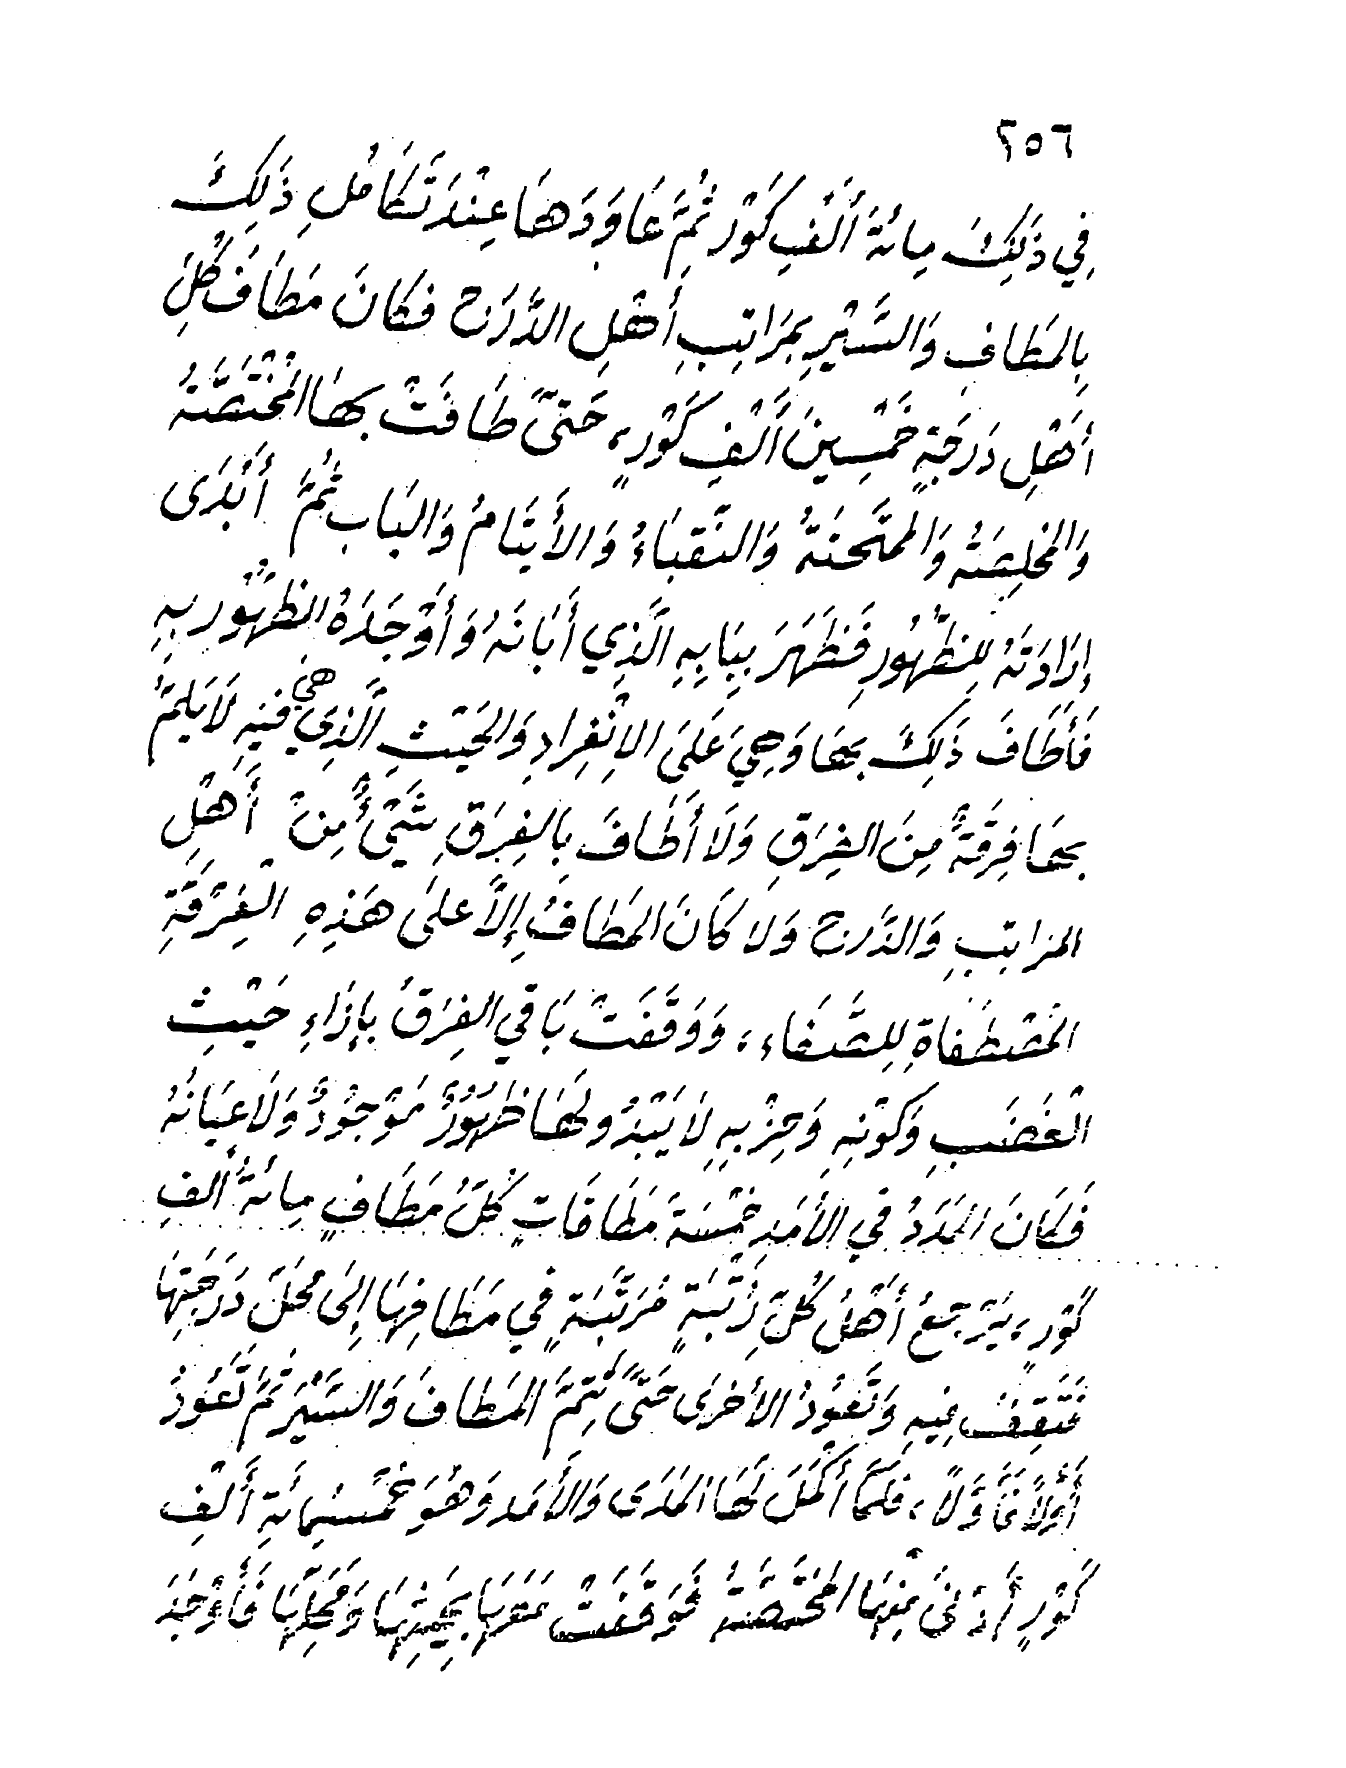 ٢٥٦
فِي ذَلِكَ مِائَةَ أَلْفِ كَوْرٍ ثُمَّ عَاوَدَهَا عِنْدَ تَكَامُلِ ذَلِكَ
بِالمَطَافِ وَالسَّيْرِ بِمَرَاتِبِ أَهْلِ الدَّرَجِ فَكَانَ مَطَافَ كُلِّ
أَهْلِ دَرَجَةٍ خَمْسِينَ أَلْفِ كَوْرٍ، حَتَّى طَافَتْ بِهَا المُخْتَصَّةُ
وَالمُخلِصَةُ وَالمُمتَحنَةُ وَالنُّقبَاءُ وَالأَيتَامُ وَالبَابِ ثُمَّ أَبْدَى
إِرَادَتَهُ لِلظُّهُورِ فَظَهَرَ بِبَابِهِ الَّذِي أَبَانَهُ وَأَوْجَدَهُ الظُّهُورَ بِهِ
فَأَطَافَ ذَلِكَ بِهَا وَهِيَ عَلَى الإِنْفِرَادِ وَالحَيْثِ الَّذِي هِيَ فِيهِ لَا يَلمُّ
بِهَا فِرقَةٌ مِنَ الفِرَقِ وَلَا أَطَافَ بِالفِرَقِ شَيْئٌ مِنْ أَهْلِ
المراتبِ وَالدَّرَجِ وَلَا كَانَ المَطَافُ إِلَّا عَلَى هَذِهِ الْفِرْقَةِ
المُصْطَفَاةِ لِلصَّفَاءِ، وَوَقَفَتْ بَاقِي الفِرَقُ بِإِزَاءِ حَيْثِ
الْغَضَبِ وَكَوْنِهِ وَحِزْبِهِ لَا يَبْدُو لَهَا ظُهُورٌ مَوْجُودٌ وَلَا عِيَانَهُ
فَكَانَ المَدَدُ فِي الأَمَدِ خَمْسَةَ مَطَافَاتٍ كُلُّ مَطَافٍ مِائَةُ أَلفِ
كَوْرٍ، يَرْجعُ أَهْلُ كُلِّ رُتْبَةٍ مُرَتَّبَةٍ فِي مَطَافِهَا إِلَى مَحَلِّ دَرَجَتِهَا
فَتَقِفُ فِيهِ وَتَعُودُ الأخرَى حَتَّى تُتِمَّ المَطَافَ وَالسَّيْرَ ثُمَّ تَعُودُ
أَوَّلاً فَأَوَّلاً، فَلَمَّا أَكْمَلَ لَهَا المَدَى وَالأَمَدَ وَهُوَ خَمْسُمِائَةِ أَلْفِ
كَوْرٍ أَدْنَى مِنْهَا المُخْتَصَّةُ فَوَقَفَتْ مَعَهَا بِحَيْثِهَا وَمَحِلِّهَا فَأَوْجَدَ